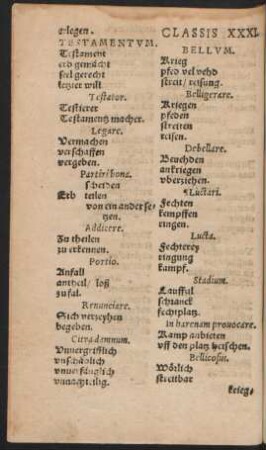 erlegen.
TESTAMENTVM.
Testament
erd gemächt
seel gerecht
letzter will
Testator.
Testierer
Testamentz macher.
Legare.
Vermachen
verschaffen
vergeben.
Partiri bona.
scheiden
Erb teilen
von ein ander se-
tzen.
Addicere.
Zu theilen
zu erkennen.
Portio.
Anfall
antheil / loß
zufal.
Renunciare.
Sich verzeyhen
begeben.
Citra damnum.
Vnuergrifflich
vnschädlich
vnuerfänglich
vnnachteilig.
CLASSIS XXXI.
BELLVM.
Krieg
pfed vel vehd
streit / reisung.
Belligerare.
Kriegen
pfeden
streiten
reisen.
Debellare.
Beuehden
ankriegen
vberziehen.
¶Luctari.
Fechten
kempffen
ringen.
Lucta.
Fechterey
ringung
kampf.
Stadium.
Lauffzil
schranck
fechtplatz.
in harenam prouocare.
Kamp anbieten
vff den platz heischen.
Bellicosus.
Wörlich
streitbar
krieg-